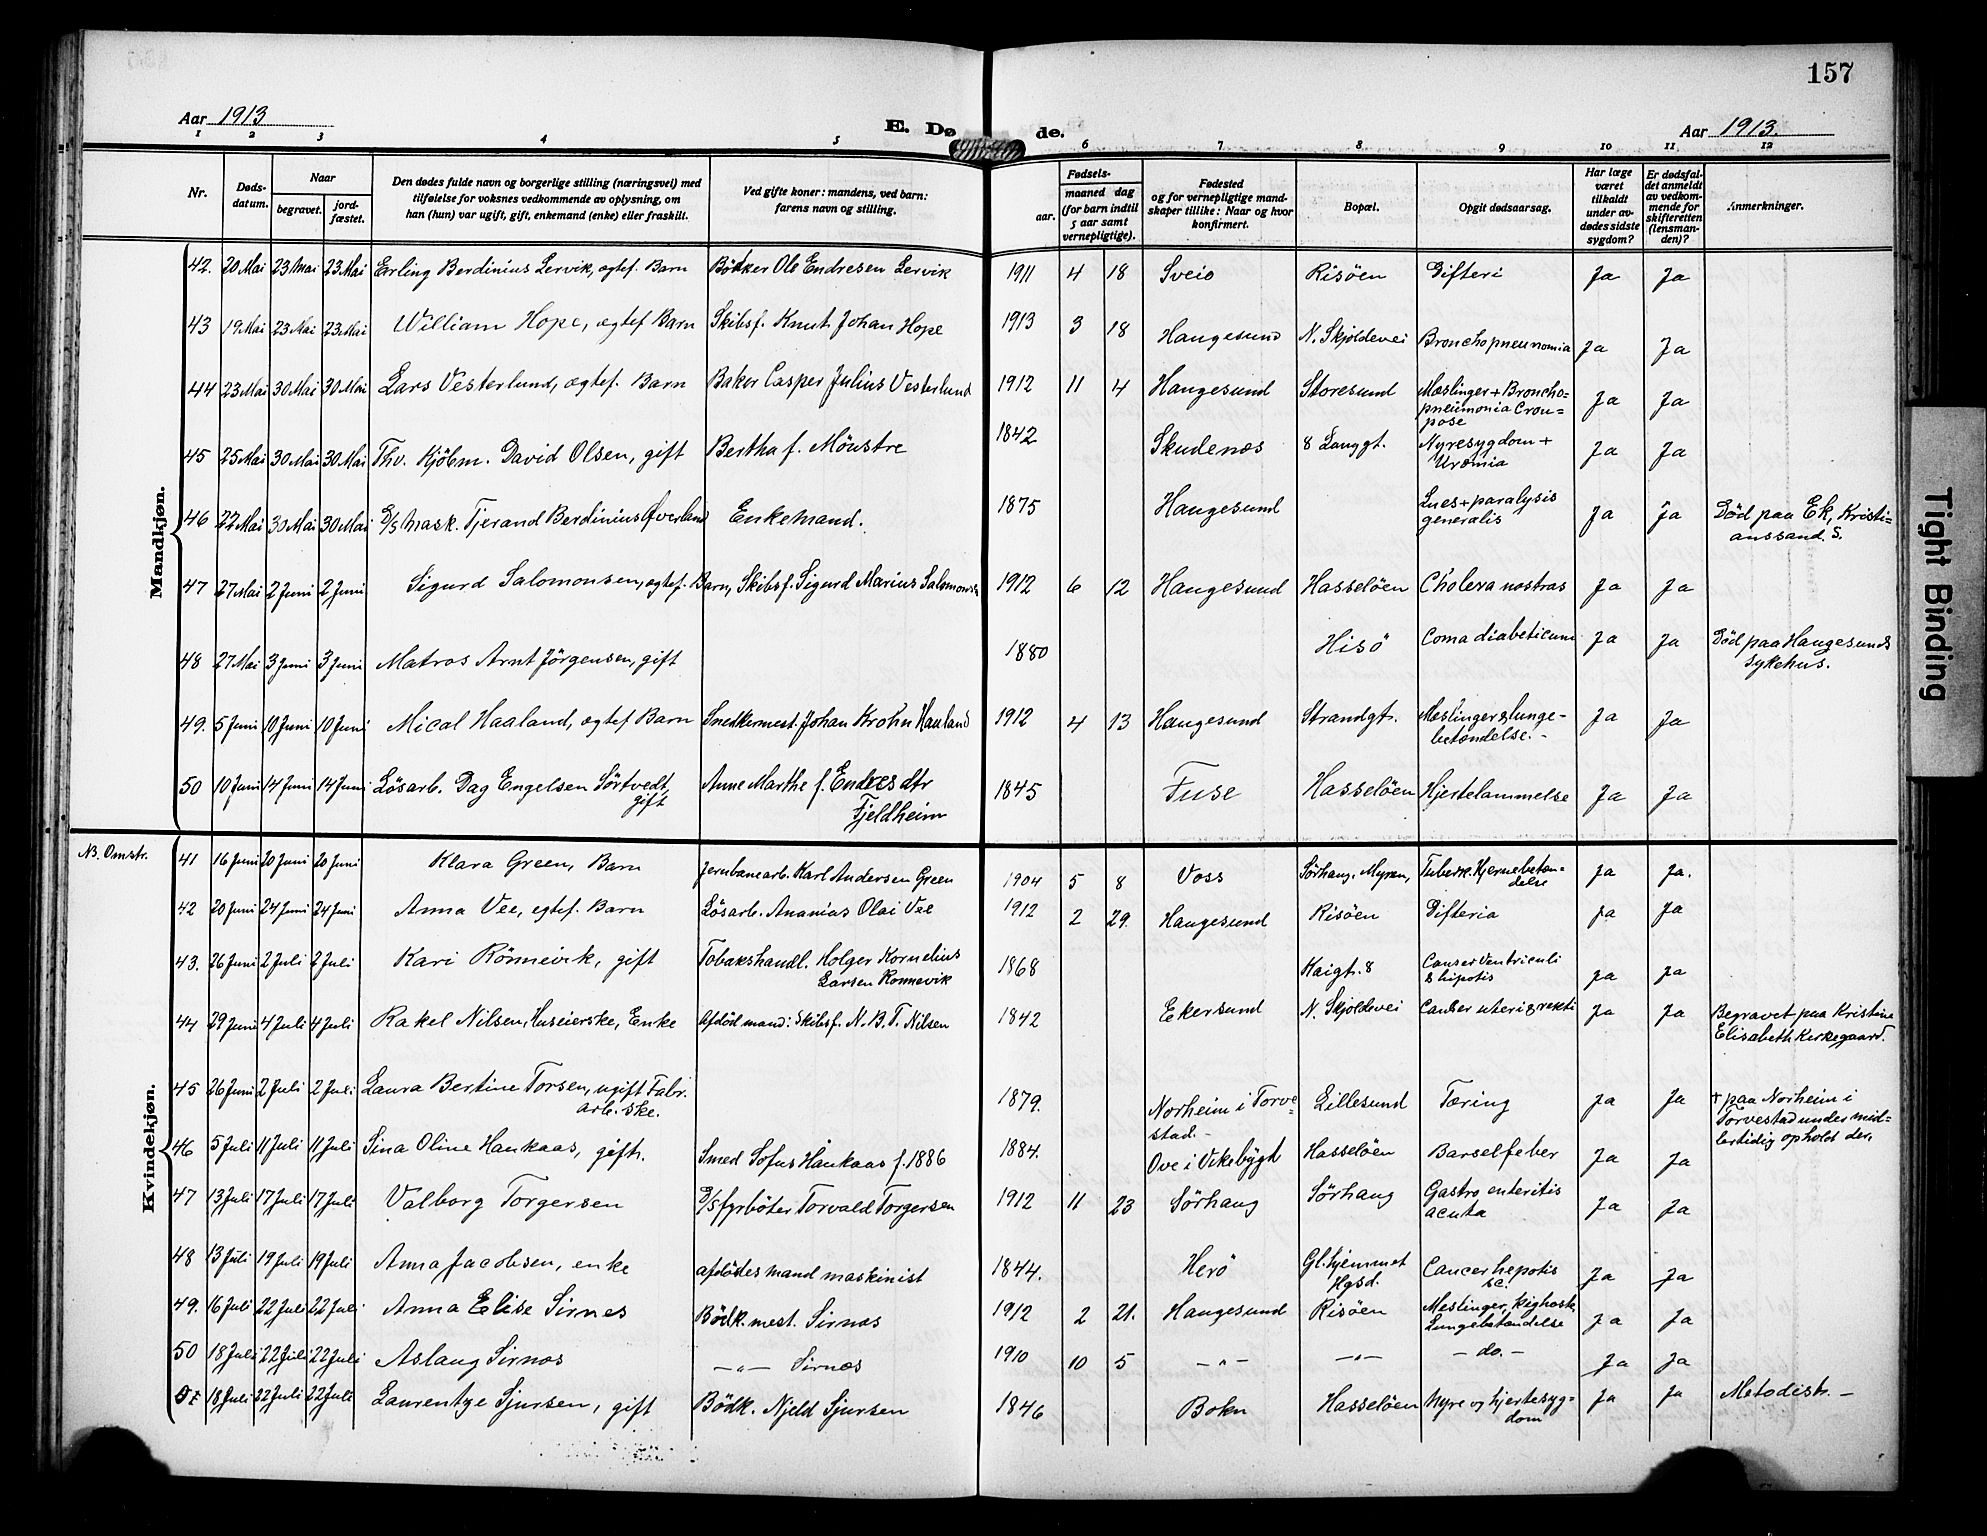 157
Aar 1913
E. Dø de.
Aar 1913.
1 2 3 4 5 6 7 8 9 10 11 12
Nr.
Døds-
datum.
Naar
begravet.
jord-
fæstet.
Den dødes fulde navn og borgerlige stilling (næringsvei) med
tilføielse for voksnes vedkommende av oplysning, om
han (hun) var ugift, gift, enkemand (enke) eller fraskilt.
Ved gifte koner: mandens, ved barn:
farens navn og stilling.
Fødsels-
aar.
maaned dag
(for barn indtil
5 aar samt
vernepligtige).
Fødested
og for vernepligtige mand-
skaper tillike: Naar og hvor
konfirmert.
Bopæl.
Opgit dødsaarsag.
Har læge
været
tilkaldt
under av-
dødes sidste
sygdom?
Er dødsfal-
det anmeldt
av vedkom-
mende for
skifteretten
(lensman-
den)?
Anmerkninger.
Mandkjøn.
42. 20 Mai 23 Mai 23 Mai Erling Berdinius Lervik, ægtef. Barn Bödker Ole Endresen Lervik 1911 4 18 Sveio Risöen Difteri Ja Ja
43 19 Mai 23 Mai 23 Mai William Hope, ægtef Barn Skibsf. Knut Johan Hope 1913 3 18 Haugesund N. Skjoldevei Bronchopneunomia Ja Ja
44 23 Mai 30 Mai 30 Mai Lars Vesterlund, ægtef. Barn Baker Casper Julius Vesterlund 1912 11 4 Haugesund Storesund Mæslinger + Broncho=
pneumonia Crou=
pose Ja Ja
45 25 Mai 30 Mai 30 Mai Thv. Kjöbm. David Olsen, gift Bertha f. Mönstre 1842 Skudenæs 8 Langgt. Nyresygdom +
Uræmia Ja Ja
46 22 Mai 30 Mai 30 Mai D/s mask. Tjerand Berdinius Överland Enkemand. 1875 Haugesund Lues + paralysis
generalis Ja Ja Död paa Ek, Kristi=
anssand. S.
47 27 Mai 2 Juni 2 Juni Sigurd Salomonsen, ægtef. Barn, Skibsf. Sigurd Marius Salomonsen 1912 6 12 Haugesund Hasselöen Cholera nostras Ja Ja
48 27 Mai 3 Juni 3 Juni Matros Arnt Jörgensen, gift 1880 Hisö Coma diabeticum Ja Ja Död paa Haugesunds
sykehus.
49. 5 Juni 10 Juni 10 Juni Mical Haaland, ægtef Barn Snedkermest. Johan Krohn Haaland 1912 4 13 Haugesund Strandgt. Mæslinger & lunge-
betændelse.- Ja Ja
50 10 Juni 14 Juni 14 Juni Lösarb. Dag Engelsen Sörtvedt,
gift Anne Marthe f. Endresdtr
Fjeldheim 1845 Fuse Hasselöen Hjertelammelse Ja Ja
NB. Omstr.
Kvindekjøn.
41 16 Juni 20 Juni 20 Juni Klara Green, Barn Jernbanearb. Karl Andersen Green 1904 5 8 Voss Sörhaug. Myren, Tuberk. Hjernebetæn=
delse Ja Ja.
42 20 Juni 24 Juni 24 Juni Anna Vee, egtef. Barn Lösarb. Ananias Olai Vee 1912 2 29. Haugesund Risöen Difteria Ja Ja
43. 26 Juni 2 Juli 2 Juli Kari Rönnevik, gift Tobakshandl. Holger Kornelius
Larsen Rønnevik 1868 Kaigt. 8 Canser Ventriculi
& hipotis Ja Ja
44 29 Juni 4 Juli 4 Juli Rakel Nilsen, Huseierske, Enke Afdöd mand: Skibsf. N. B. T. Nilsen 1842 Ekersund N. Skjoldevei Canser uteri & rekti Ja Ja Begravet paa Kristine
Elisabeth Kirkegaard.
45 26 Juni 2 Juli 2 Juli Laura Bertine Torsen, ugift Fabr.
arb. ske. 1879. Norheim i Torve=
stad.- Lillesund Tæring Ja Ja † paa Norheim i
Torvestad under mid=
lertidig ophold der.
46 5 Juli 11 Juli 11 Juli Sina Oline Haukaas, gift. Smed Sofus Haukaas f. 1886 1884. Ove i Vikebygd Hasselöen Barselfeber Ja Ja
47 13 Juli 17 Juli 17 Juli Valborg Torgersen D/s fyrböter Torvald Torgersen 1912 11 23 Sörhaug Sörhaug Gastro enteritis
acuta Ja Ja
48 13 Juli 19 Juli 19 Juli Anna Jacobsen, enke afdödes mand maskinist 1844. Herö Gl. hjemmet
Hgsd. Cancer hepotis
sc. Ja Ja
49. 16 Juli 22 Juli 22 Juli Anna Elise Sirnes Bödk. mest. Sirnæs 1912 2 21. Haugesund Risöen Meslinger, kighoste
Lungebetændelse Ja Ja
50 18 Juli 22 Juli 22 Juli Aslaug Sirnæs —"— Sirnæs 1910 10 5 —"— —"— — do. — Ja Ja
18 Juli 22 Juli 22 Juli Laurentze Sjursen, gift Bödk. Njeld Sjursen 1846 Bokn Hasselöen Nyre og hjertesyg=
dom Ja Ja Metodist. —
Tight Binding